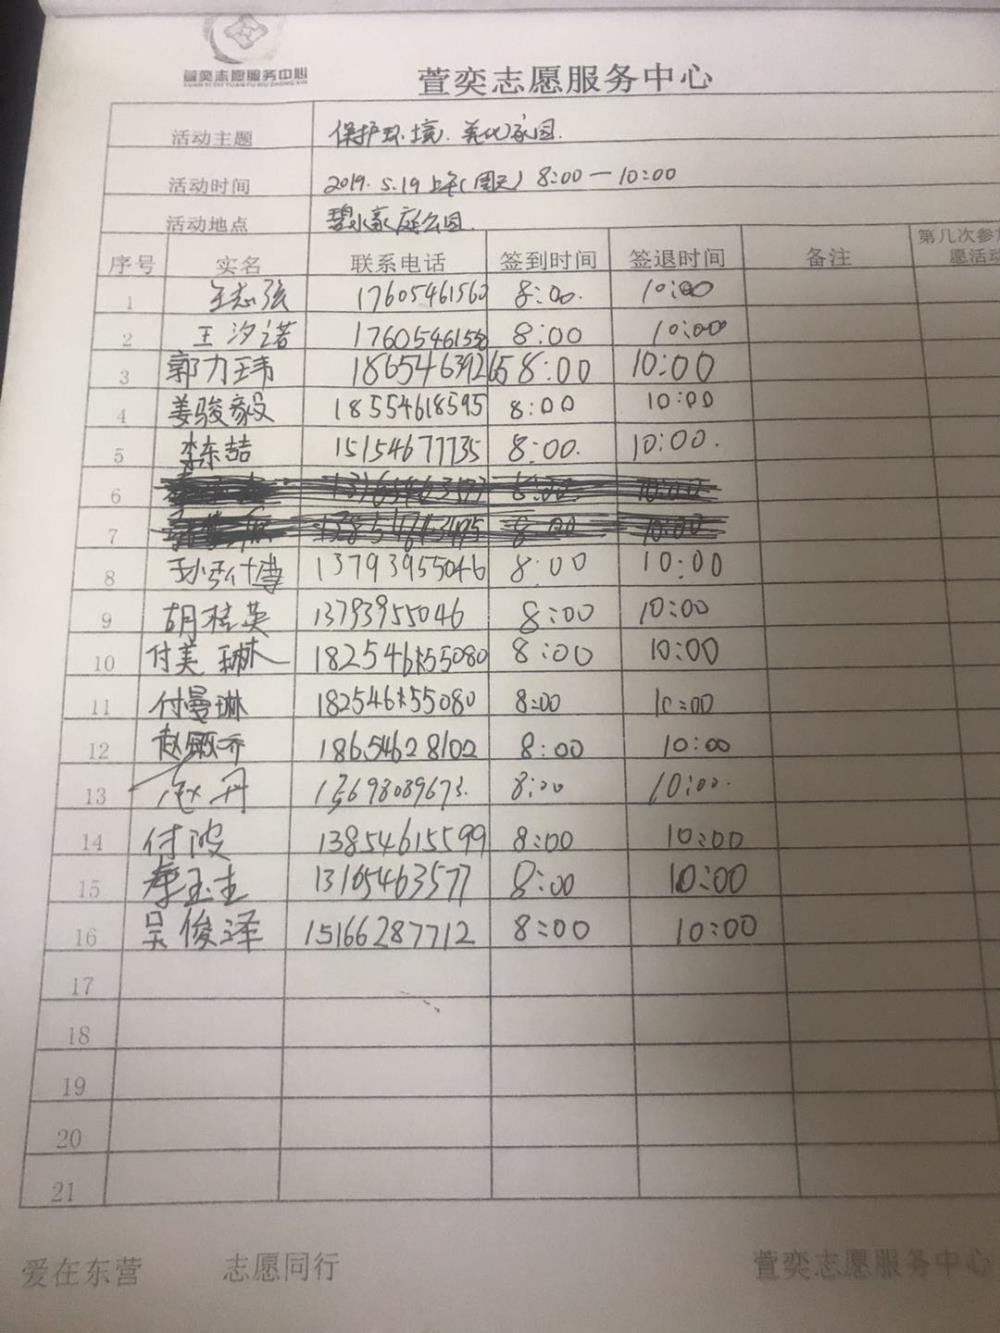 萱奕志愿服务中心
萱奕志愿服务中心
活动主题 保护环境.美化家园.
活动时间 2019.5.19上午(周天) 8:00—10:00
活动地点 碧水豪庭公园.
序号 实名 联系电话 签到时间 签退时间 备注 第几次参加
愿活动
1 王志弦 17605461560 8:00. 10:00
2 王汐诺 8:00 10:00
3 郭力玮 8:00 10:00
4 姜骏毅 18554618595 8:00 10:00
5 李东喆 15154677735 8:00. 10:00.
6
7
8 13793955046 8:00 10:00
9 胡桂英 13793955046 8:00 10:00
10 付美琳 8:00 10:00
11 付曼琳 8:00 10:00
12 18654628102 8:00 10:00
13 赵丹 13698089673. 8:00 10:00.
14 付波 13854615599 8:00 10:00
15 8:00 10:00
16 吴俊泽 15166287712 8:00 10:00
17
18
19
20
21
爱在东营 志愿同行 萱奕志愿服务中心